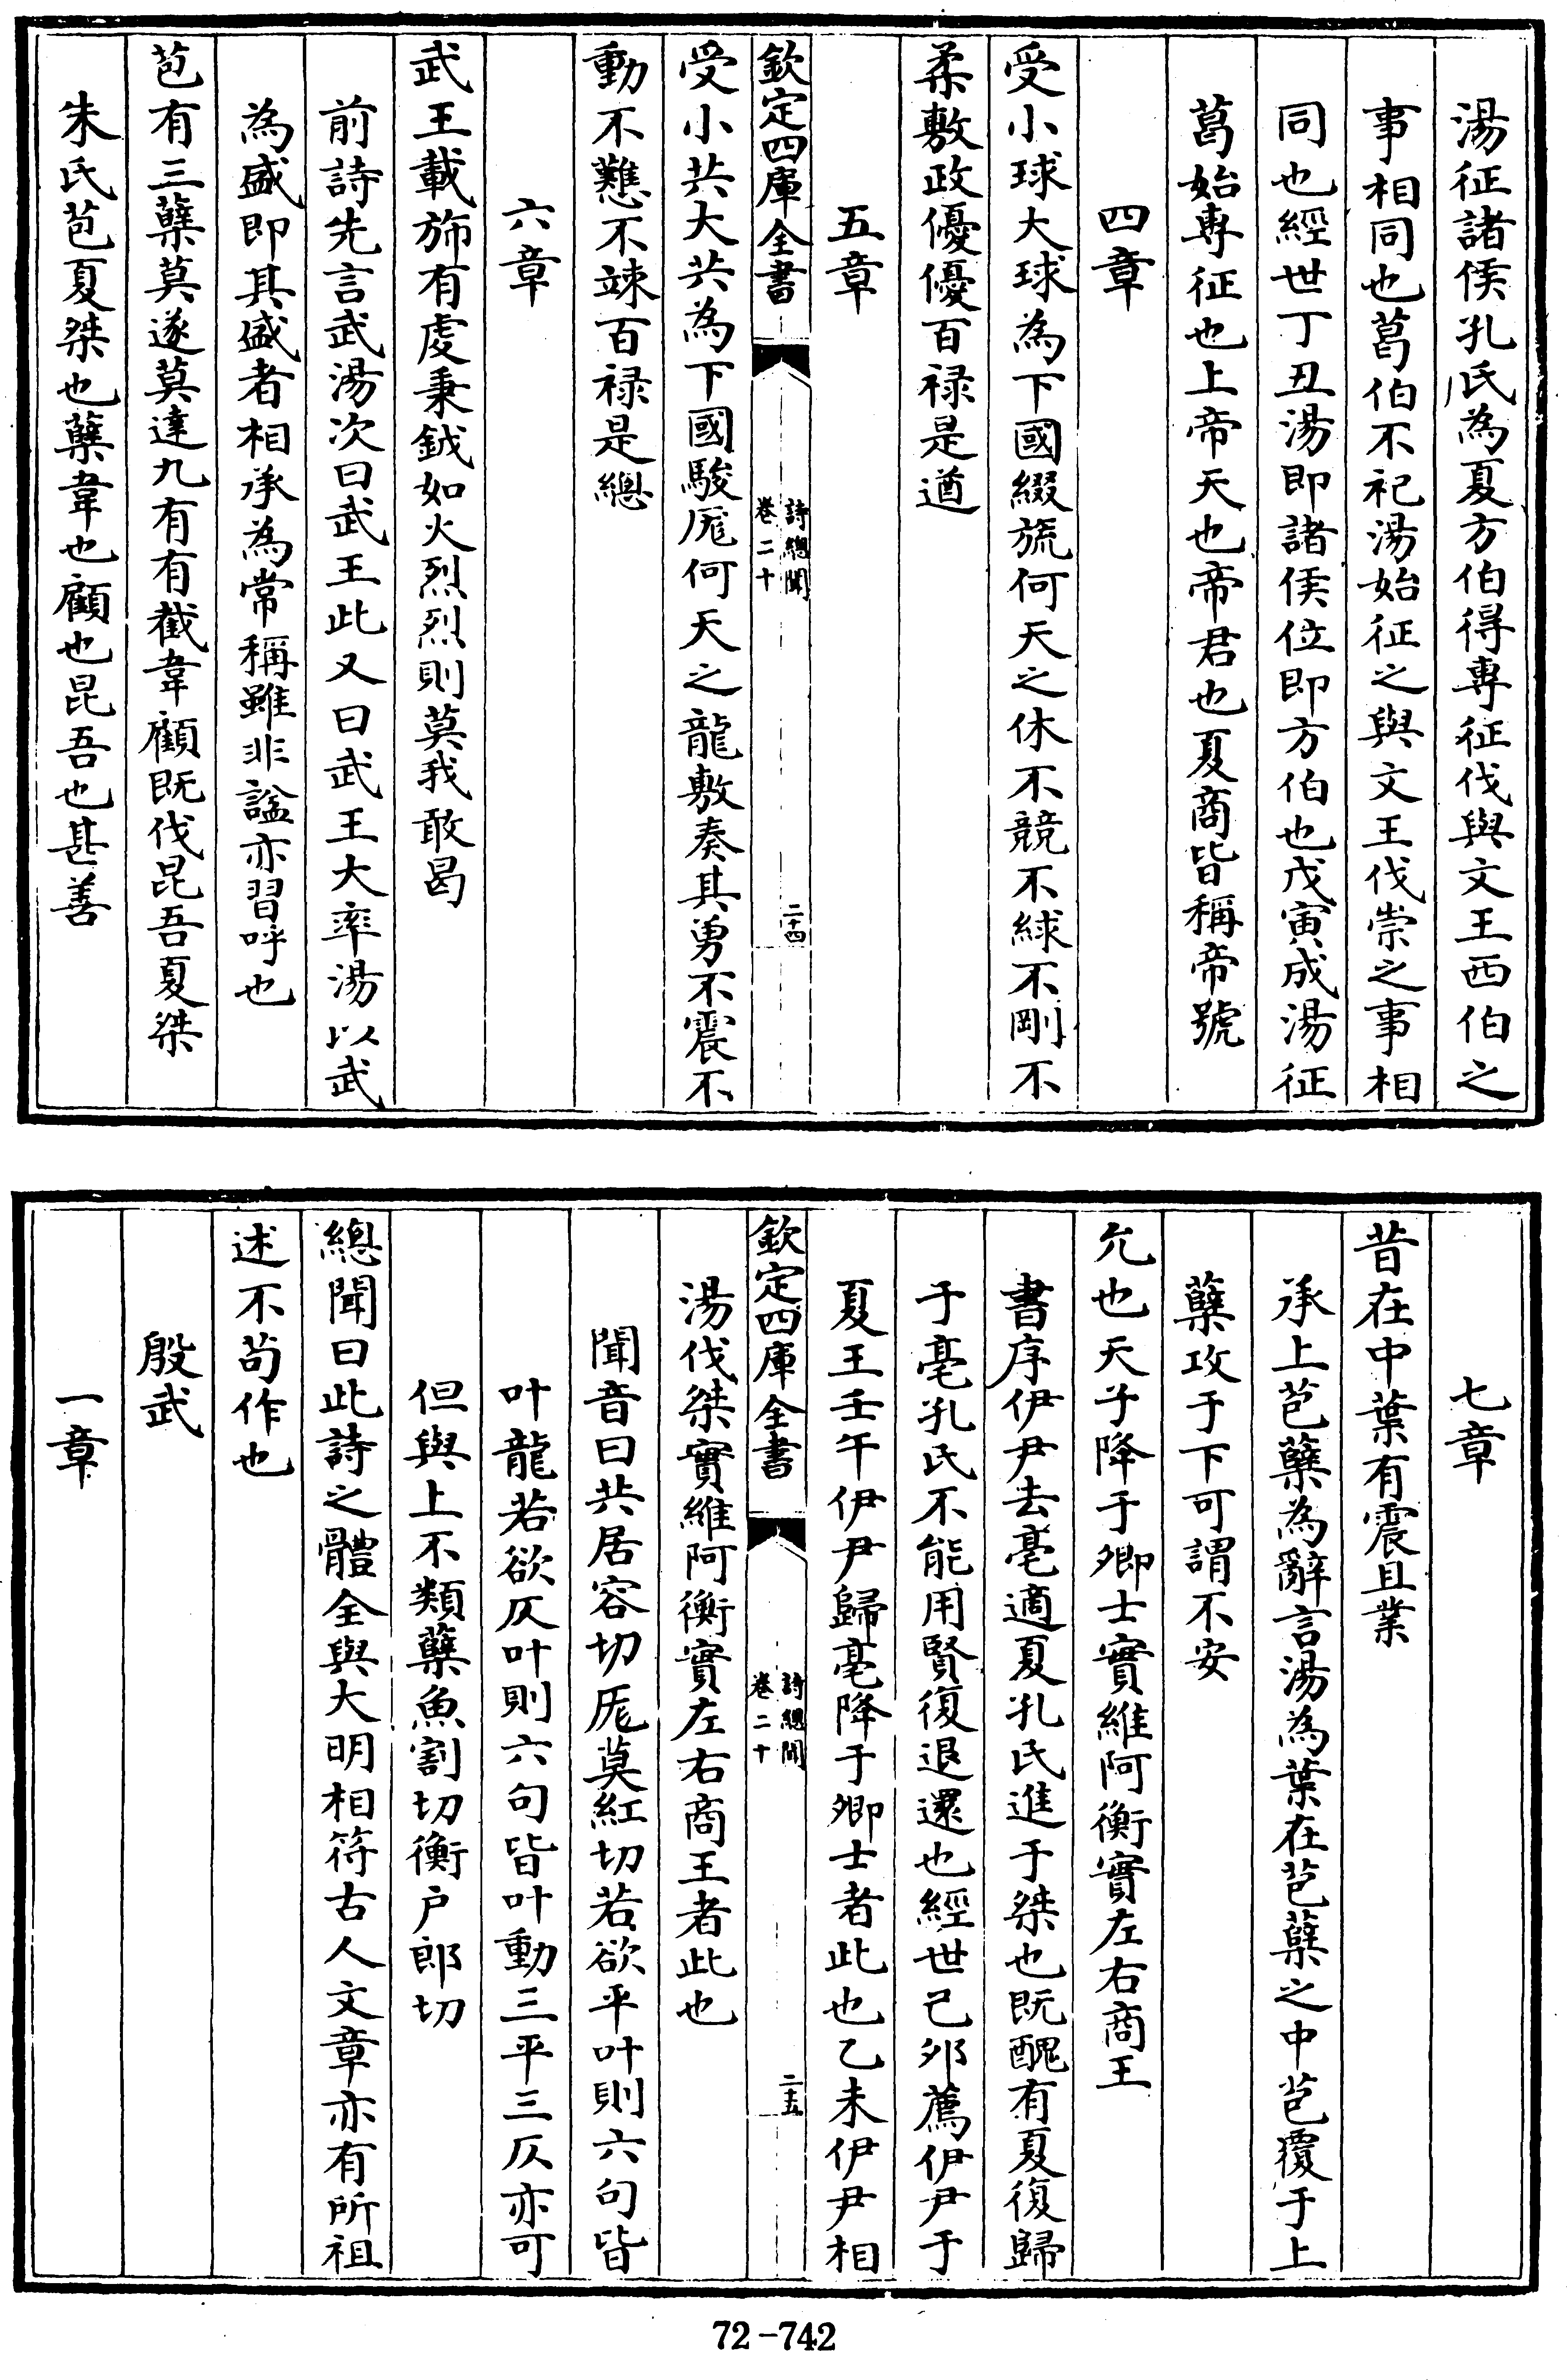 湯征諸侯孔氏為夏方伯得專征伐與文王西伯之
事相同也葛伯不祀湯始征之與文王伐崇之事相
同也經世丁丑湯即諸侯位即方伯也戊寅成湯征
葛始專征也上帝天也帝君也夏商皆稱帝號
四章
受小球大球為下國綴旒何天之休不競不絿不剛不
柔敷政優優百禄是遒
五章
欽定四庫全書
詩總聞
卷二十
二十四
受小共大共為下國駿厖何天之龍敷奏其勇不震不
動不戁不竦百禄是總
六章
武王載旆有虔秉鉞如火烈烈則莫我敢曷
前詩先言武湯次曰武王此又曰武王大率湯以武
為盛即其盛者相承為常稱雖非諡亦習呼也
苞有三蘖莫遂莫達九有有截韋顧既伐昆吾夏桀
朱氏苞夏桀也蘖韋也顧也昆吾也甚善
七章
昔在中葉有震且業
承上苞蘖為辭言湯為葉在苞蘖之中苞覆于上
蘖攻于下可謂不安
允也天子降于卿士實維阿衡實左右商王
書序伊尹去亳適夏孔氏進于桀也既醜有夏復歸
于亳孔氏不能用賢復退還也經世己夘薦伊尹于
夏王壬午伊尹歸亳降于卿士者此也乙未伊尹相
欽定四庫全書
詩總聞
卷二十
二十五
湯伐桀實維阿衡實左右商王者此也
聞音曰共居容切厖莫紅切若欲平叶則六句皆
叶龍若欲仄叶則六句皆叶動三平三仄亦可
但與上不類蘖魚割切衡户郎切
總聞曰此詩之體全與大明相符古人文章亦有所祖
述不苟作也
殷武
一章
72-742